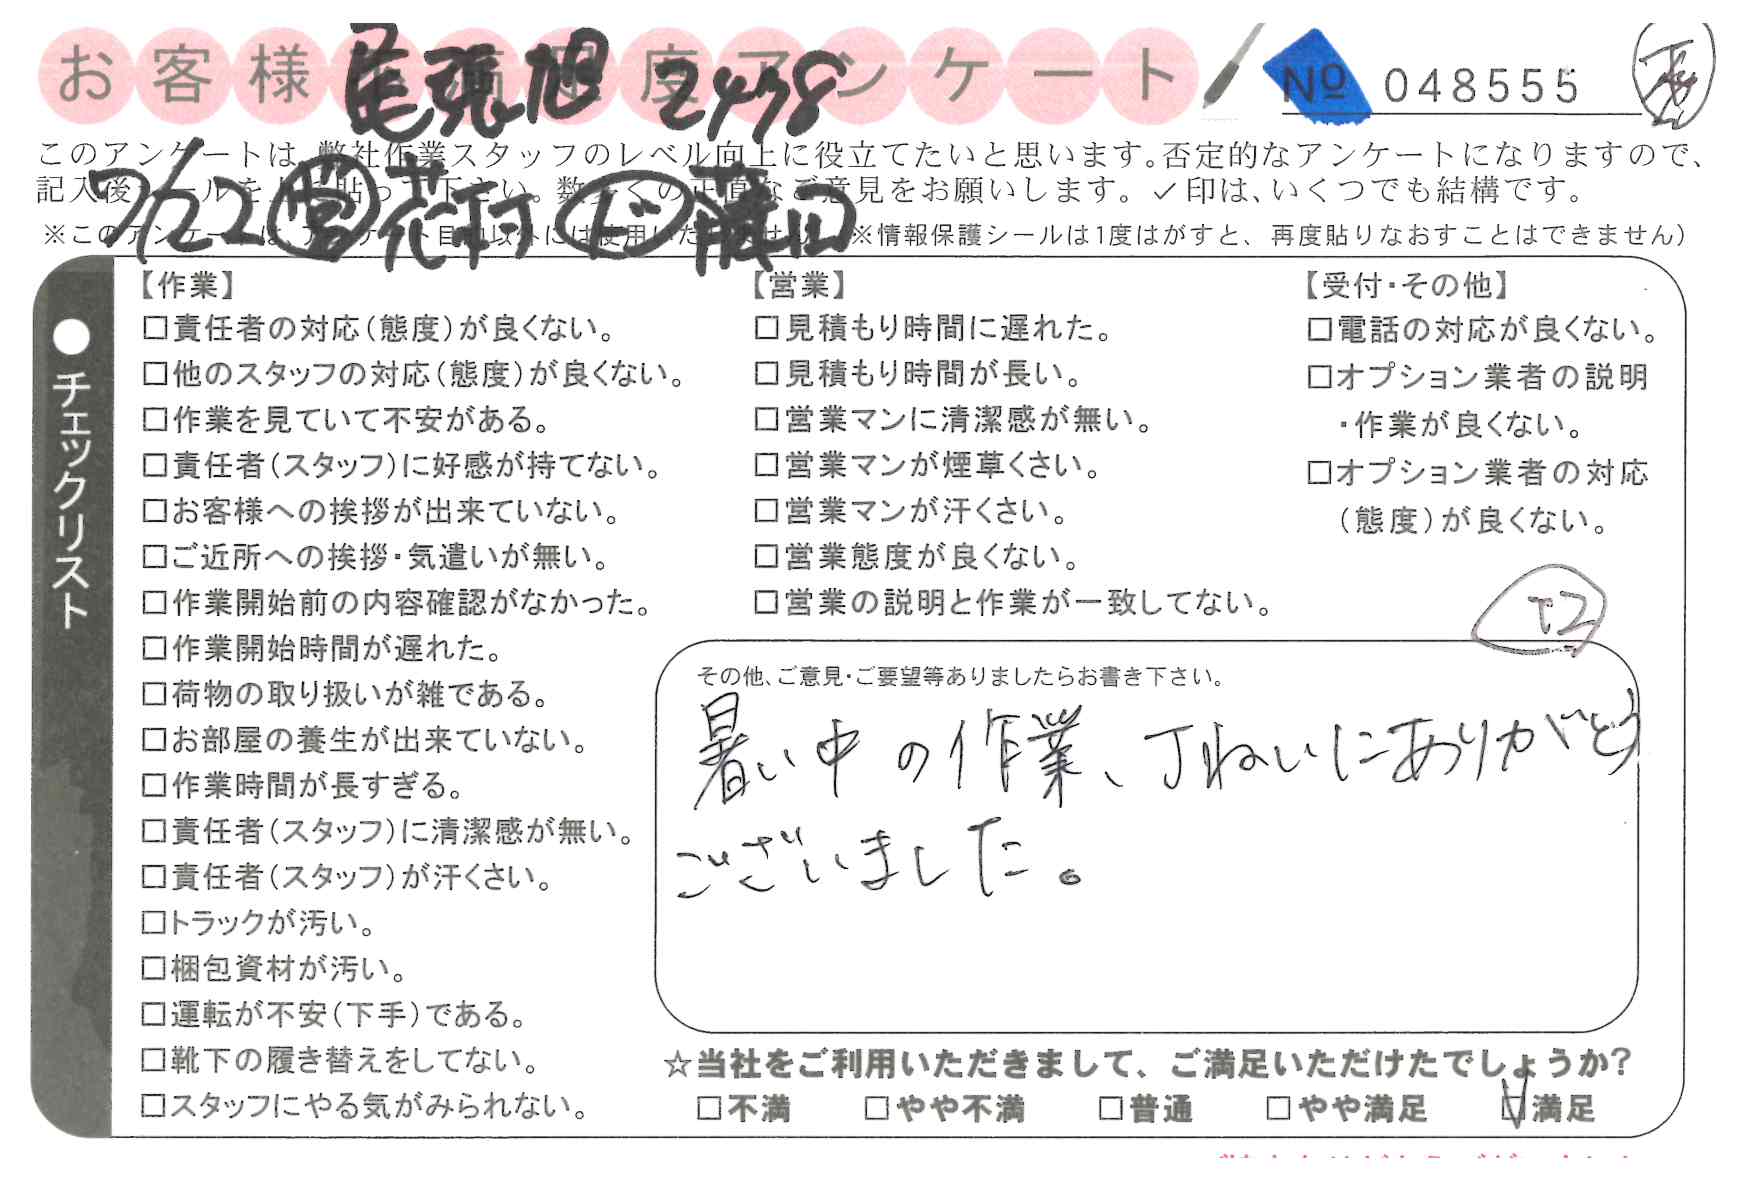 お客様満足度アンケート
№ 048555
尾張旭 2438
このアンケートは、弊社作業スタッフのレベル向上に役立てたいと思います。否定的なアンケートになりますので、
記入後シールを上に貼って下さい。数多くの正直なご意見をお願いします。✓印は、いくつでも結構です。
7/22 営 花村 ド
※情報保護シールは1度はがすと、再度貼りなおすことはできません)
●チェックリスト
【作業】
□責任者の対応(態度)が良くない。
□他のスタッフの対応(態度)が良くない。
□作業を見ていて不安がある。
□責任者(スタッフ)に好感が持てない。
□お客様への挨拶が出来ていない。
□ご近所への挨拶・気遣いが無い。
□作業開始前の内容確認がなかった。
□作業開始時間が遅れた。
□荷物の取り扱いが雑である。
□お部屋の養生が出来ていない。
□作業時間が長すぎる。
□責任者(スタッフ)に清潔感が無い。
□責任者(スタッフ)が汗くさい。
□トラックが汚い。
□梱包資材が汚い。
□運転が不安(下手)である。
□靴下の履き替えをしてない。
□スタッフにやる気がみられない。
【営業】
□見積もり時間に遅れた。
□見積もり時間が長い。
□営業マンに清潔感が無い。
□営業マンが煙草くさい。
□営業マンが汗くさい。
□営業態度が良くない。
□営業の説明と作業が一致してない。
【受付・その他】
□電話の対応が良くない。
□オプション業者の説明
・作業が良くない。
□オプション業者の対応
(態度)が良くない。
その他、ご意見・ご要望等ありましたらお書き下さい。
暑い中の作業、丁ねいにありがとう
ございました。
☆当社をご利用いただきまして、ご満足いただけたでしょうか?
□不満 □やや不満 □普通 □やや満足 ☑満足